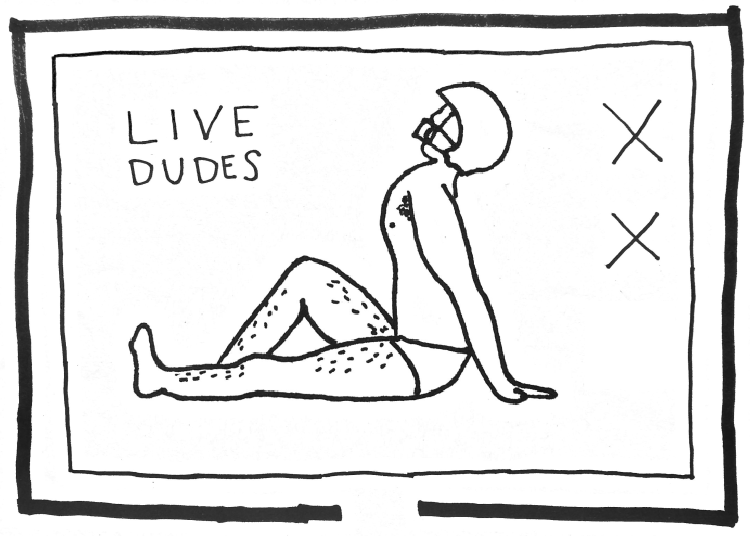 LIVE
DUDES
X
X